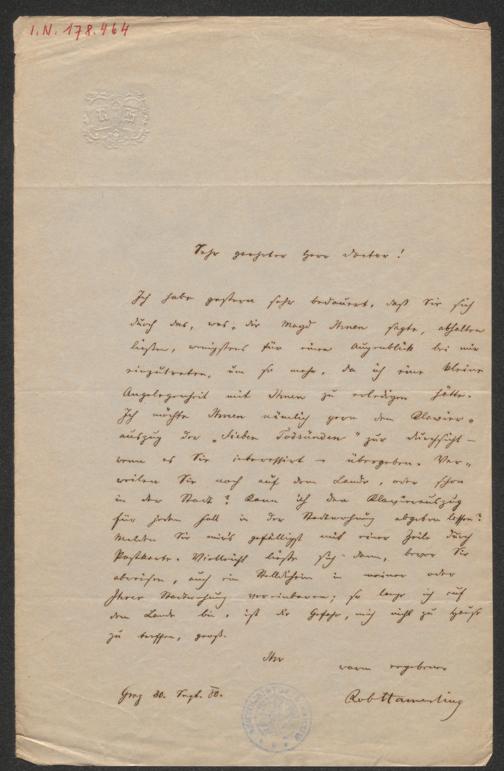 I.N. 178.464
Sehr geehrter Herr Doctor!
Ich habe gestern sehr bedauert, daß Sie sich
durch das, was die Magd Ihnen sagte, abhalten
ließen, wenigstens für einen Augenblick bei mir
einzutreten, um so mehr, da ich eine kleine
Angelegenheit mit Ihnen zu erledigen hätte.
Ich möchte Ihnen nämlich gern den Klavier-
auszug der „Sieben Todsünden" zur Durchsicht –
wenn es Sie interessirt – übergeben. Ver-
weilen Sie noch auf dem Lande, oder schon
in der Stadt? Kann ich den Klavierauszug
für jeden Fall in der Stadtwohnung abgeben lassen?
Melden Sie mirs gefälligst mit einer Zeile durch
Postkarte. Vielleicht ließe sich dann, bevor Sie
abreisen, auch ein Stelldichein in meiner oder
Ihrer Stadtwohnung vereinbaren; so lange ich auf
dem Lande bin, ist die Gefahr, mich nicht zu Hause
zu treffen, groß.
Ihr
warm ergebener
Graz 30. Sept. 80.
Rob Hamerling